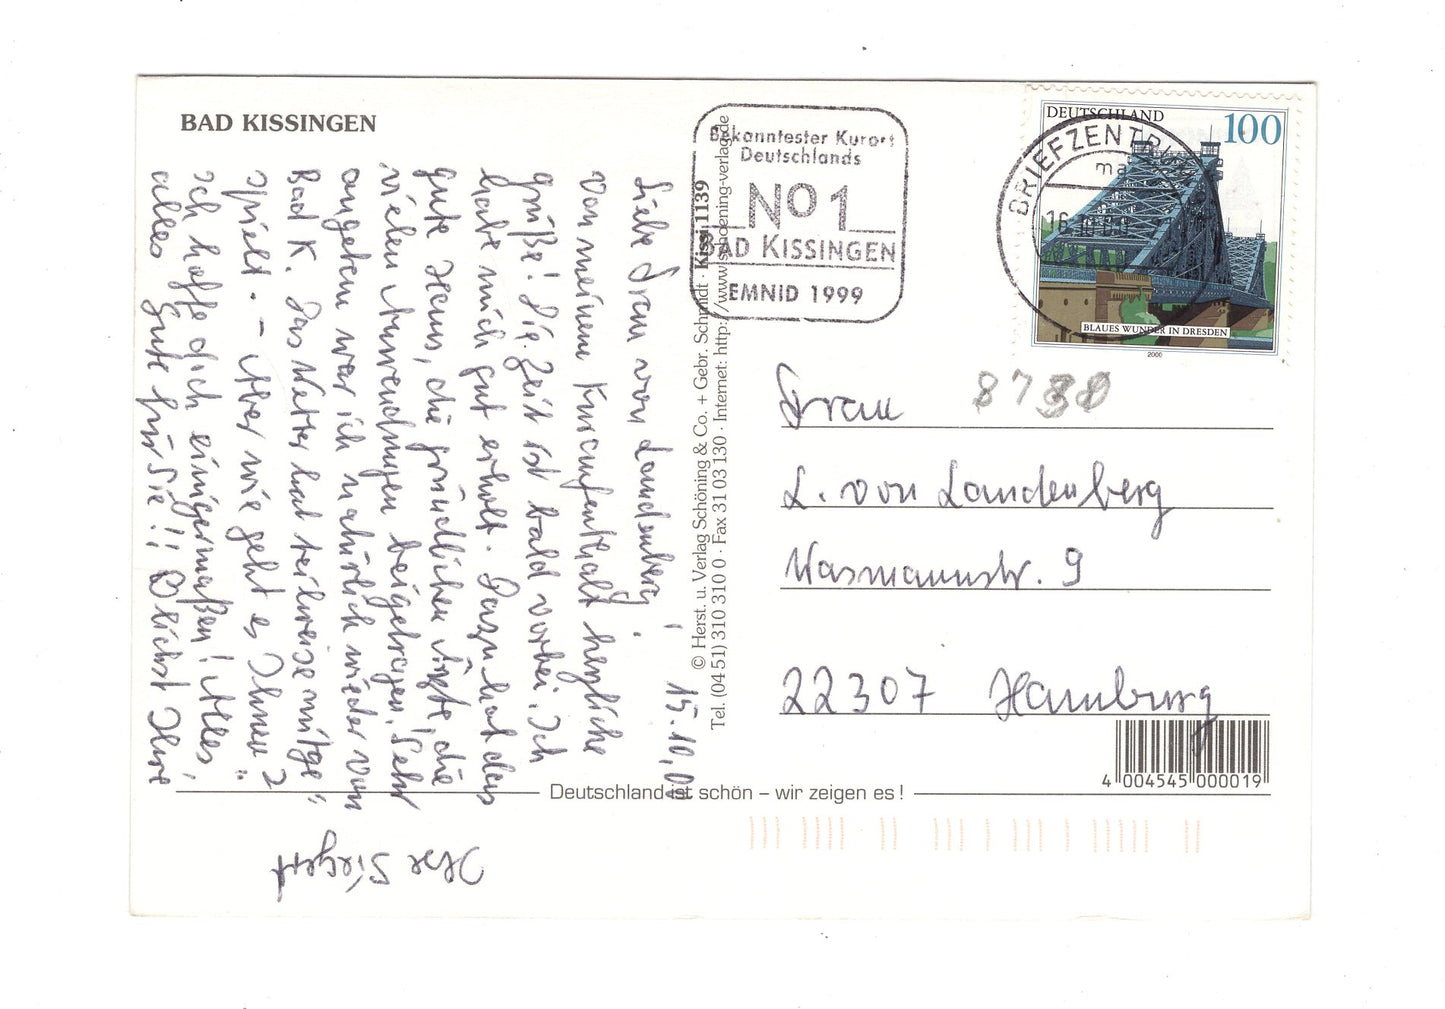 BAD KISSINGEN
15.10.00
Liebe Frau von Landenberg!
Von meinem Kuraufenthalt herzliche
Grüße! Die Zeit ist bald vorbei. Ich
habe mich gut erholt. Dazu hat das
gute Haus, die gründlichen Ärzte, die
vielen Anwendungen beigetragen. Sehr
angetan war ich natürlich wieder von
Bad K. Das Wetter hat teilweise mitge-
spielt. – Aber wie geht es Ihnen?
Ich hoffe doch einigermaßen! Alles,
alles Gute für Sie!! Ihre
Siegert
Bekanntester Kurort
Deutschlands
NO 1
BAD KISSINGEN
EMNID 1999
BRIEFZENTRUM
ma
16
DEUTSCHLAND
100
BLAUES WUNDER IN DRESDEN
2000
© Herst. u. Verlag Schöning & Co. + Gebr. Schmidt · Kiss 1139
Tel. (04 51) 310 310 0 · Fax 31 03 130 · Internet: http://www.schoening-verlag.de
Frau
L. von Landenberg
Wasmannstr. 9
22307 Hamburg
4 004545 000019
Deutschland ist schön – wir zeigen es!